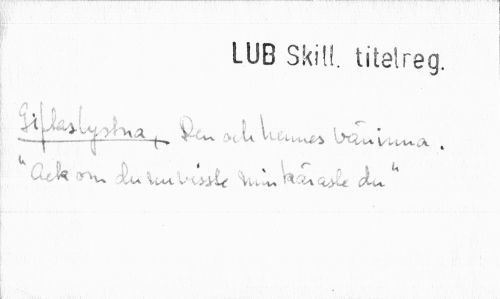 LUB Skill. titelreg.
Giftaslystna, Den och hennes väninna.
"Ack om du nu visste min käraste du"